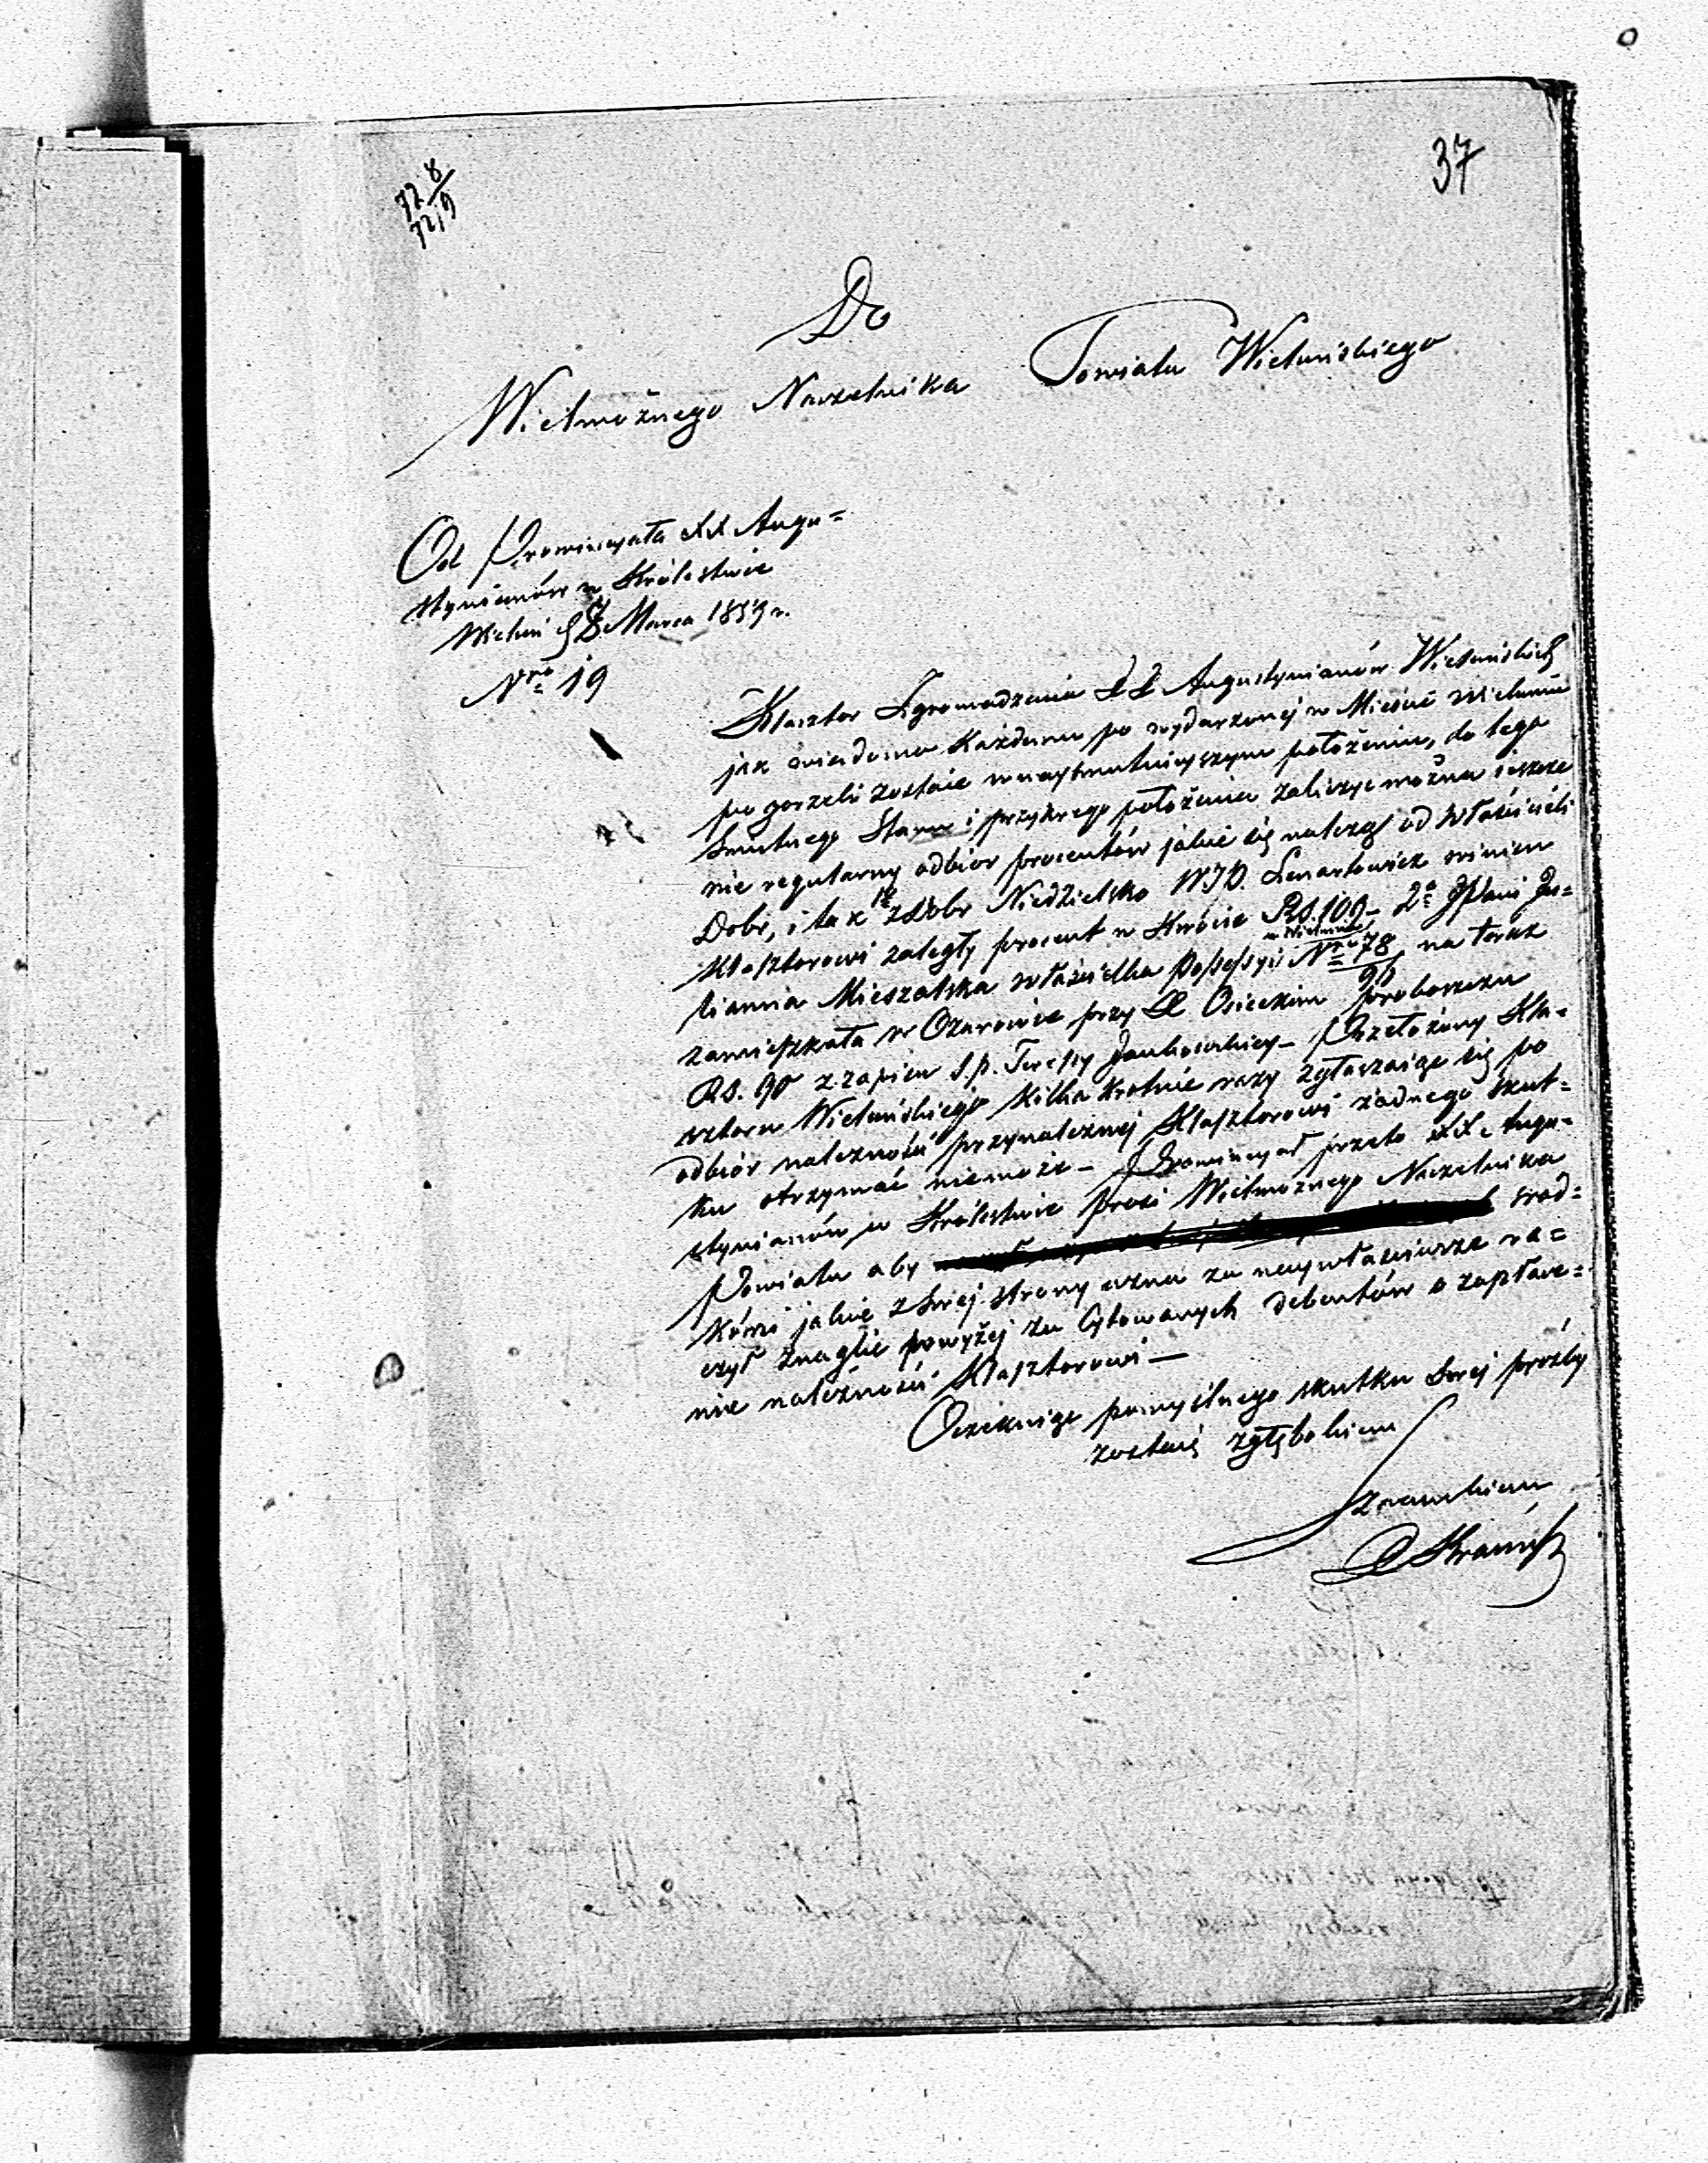 37
728/729
Do
Wielmożnego Naczelnika Powiatu Wieluńskiego
Od Prowincyała XX Augu=
stynianów w Królestwie
Wieluń Marca 1859 r.
Nro 19
Klasztor Zgromadzenia XX Augustynianów Wieluńskich
jak wiadomo każdemu po wydarzonej w Mieście Wieluniu
pogorzeli zostaie w naysmutnieyszym położeniu, do tego
smutnego stanu i przykrego położenia zaliczyć można ieszcze
nie regularny odbior procentów jakie się należą od właścicieli
Dobr, i tak 1e z Dobr Niedzielsko W.JP. Lenartowicz winien
Klasztorowi zaległy procent w kwocie RS. 109 – 2e JPani Ju=
lianna Mieszalska właścicielka Possessyi w Wieluniu Nro 78/ na teraz
zamieszkała w Ożarowie przy X Osieckim proboszczu
RS. 90 z zapisu ś.p. Teressy Jankowskiey – Przełożony Kla=
sztoru Wieluńskiego kilka krotnie razy zgłaszaiąc się po
odbiór należności przynależnej Klasztorowi żadnego skut=
ku otrzymać niemoże – Prowincyał przeto XX Augu=
stynianów w Królestwie prosi Wielmożnego Naczelnika
Powiatu aby srod=
kami jakie z swej strony uzna za naywłaściwsze ra=
czył znaglić powyżej za Cytowanych debentów o zapłace=
nie należności Klasztorowi –
Oczekuiąc pomyślnego skutku swej prożby
zostaię z głębokiem
Szacunkiem